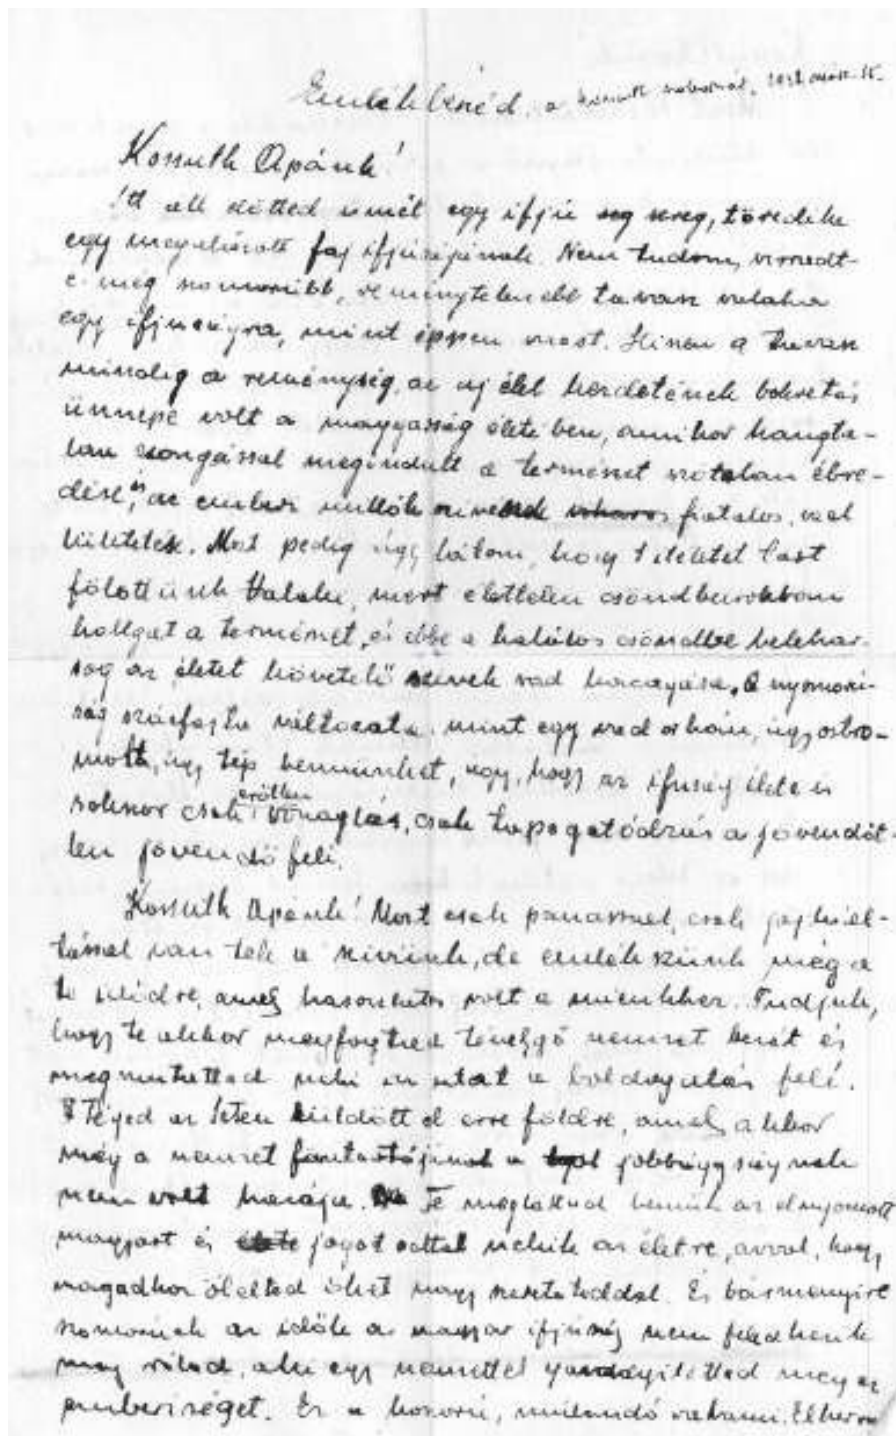 Emlékbeszéd, a Kossuth szobornál,
Kossuth Apánk!
Itt áll előtted ismét egy ifjú sereg, töredéke
egy megalázott faj ifjúságának. Nem tudom, virradt-
e még szomorúbb, reménytelenebb tavasz valaha
egy ifjuságra, mint éppen most. Hiszen a tavasz
mindig a reménység, az uj élet kezdetének bokrétás
ünnepe volt a magyarság életében, amikor hangta-
lan zsongással megindult a természet szótalan ébre-
dése, az emberi fiatalos,
Most pedig úgy látom, hogy ítéletet
fölöttünk Valaki, mert élettelen csöndburokban
hallgat a természet, és ebbe a halálos csöndbe belehar-
sog az életet követelő szivek vad kacagása. A nyomorú-
ság százfajta változata, mint egy vad orkán, úgy ostro-
molt, úgy tép bennünket, úgy, hogy az ifjuság élete is
sokszor csak erőtlen vonaglás, csak tapogatódzás a jövendöt-
len jövendő felé.
Kossuth Apánk! Most csak panasszal, csak jajkiál-
tással van tele a szivünk, de emlékszünk még a
te idődre, amely hasonlatos volt a mienkhez. Tudjuk,
hogy te akkor megfogtad tévelygő nemzet kezét és
megmutattad neki az utat a boldogulás felé.
Téged az Isten küldött el erre földre, amely akkor
még a nemzet fenntartójának a jobbágyságnak
nem volt hazája. Te megláttad bennük az elnyomott
magyart és jogot adtál nekik az életre, azzal, hogy
magadhoz ölelted őket nagy szeretetoddal. És bármennyire
szomorúak az idők a magyar ifjúság nem feledkezik
meg rólad, aki egy nemzettel gazdagitottad meg az
emberiséget. Ez a koszorú,